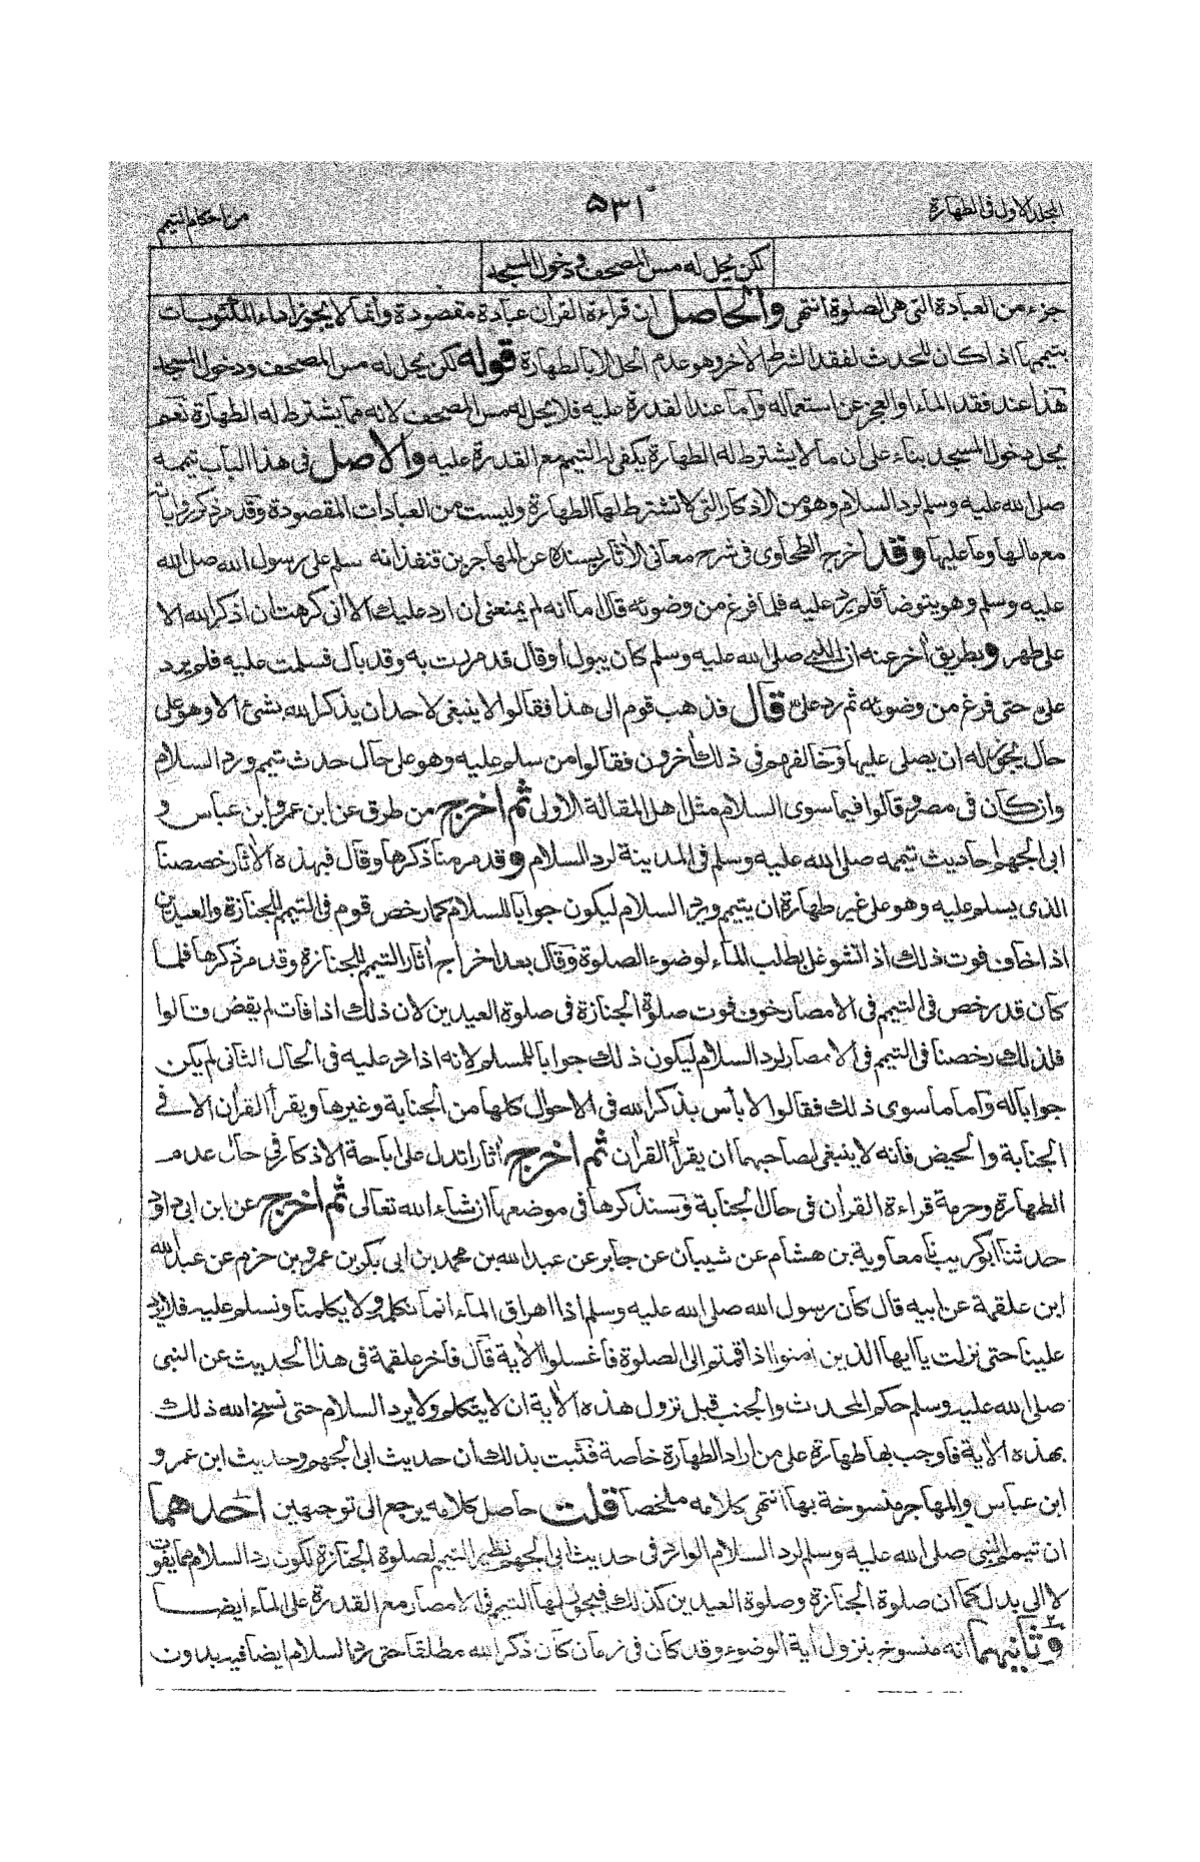 المجلد الاول فى الطهارة
۵۳۱
من احكام التيمم
لكن يحل له مس المصحف ودخول المسجد
جزء من العبادة التى هى الصلوة انتهى والحاصل ان قراءة القرآن عبادة مقصودة وانما لا يجوز اداء المكتوبات
بتيممها اذا كان للمحدث لفقد الشرط الآخر وهو عدم الحل الا بالطهارة قوله لكن يحل له مس المصحف ودخول المسجد
هذا عند فقد الماء او العجز عن استعماله واما عند القدرة عليه فلا يحل له مس المصحف لانه مما يشترط له الطهارة نعم
يحل دخول المسجد بناء على ان ما لا يشترط له الطهارة يكفى له التيمم مع القدرة عليه والاصل فى هذا الباب تيممه
صلى الله عليه وسلم لرد السلام وهو من الاذكار التى لا تشترط لها الطهارة وليست من العبادات المقصودة وقد مر ذكر رواياته
مع مالها وما عليها وقد اخرج الطحاوى فى شرح معانى الآثار بسنده عن المهاجر بن قنفذ انه سلم على رسول الله صلى الله
عليه وسلم وهو يتوضأ فلم يرد عليه فلما فرغ من وضوئه قال اما انه لم يمنعنى ان ارد عليك الا انى كرهت ان اذكر الله الا
على طهر وبطريق آخر عنه ان النبى صلى الله عليه وسلم كان يبول او قال قد مررت به وقد بال فسلمت عليه فلم يرد
على حتى فرغ من وضوئه ثم رد على قال فذهب قوم الى هذا فقالوا لا ينبغى لاحد ان يذكر الله بشئ الا وهو على
حال يجوز له ان يصلى عليها وخالفهم فى ذلك آخرون فقالوا من سلم عليه وهو على حال حدث تيمم ورد السلام
وان كان فى مصر وقالوا فيما سوى السلام مثل اهل المقالة الاولى ثم اخرج من طرق عن ابن عمر وابن عباس و
ابى الجهيم احاديث تيممه صلى الله عليه وسلم فى المدينة لرد السلام وقد مر منا ذكرها وقال فبهذه الآثار خصصنا
الذى يسلم عليه وهو على غير طهارة ان يتيمم ويرد السلام ليكون جوابا للسلام كما رخص قوم فى التيمم للجنازة والعيدين
اذا خاف فوت ذلك اذا تشوغل بطلب الماء لوضوء الصلوة وقال بعد اخراج آثار التيمم للجنازة وقد مر ذكرها فلما
كان قد رخص فى التيمم فى الامصار خوف فوت صلوة الجنازة فى صلوة العيدين لان ذلك اذا فات لم يقض قالوا
فلذلك رخصنا فى التيمم فى الامصار لرد السلام ليكون ذلك جوابا للمسلم لانه اذا رد عليه فى الحال الثانى لم يكن
جوابا له واما ما سوى ذلك فقالوا لا بأس بذكر الله فى الاحوال كلها من الجنابة وغيرها ويقرأ القرآن الا فى
الجنابة والحيض فانه لا ينبغى لصاحبهما ان يقرأ القرآن ثم اخرج آثارا تدل على اباحة الاذكار فى حال عدم
الطهارة وحرمة قراءة القرآن فى حال الجنابة وسنذكرها فى موضعها ان شاء الله تعالى ثم اخرج عن ابن ابى داود
حدثنا ابو كريب نا معاوية بن هشام عن شيبان عن جابر عن عبد الله بن محمد بن ابى بكر بن عمرو بن حزم عن عبد الله
ابن علقمة عن ابيه قال كان رسول الله صلى الله عليه وسلم اذا اهراق الماء انما نكلمه ولا يكلمنا ونسلم عليه فلا يرد
علينا حتى نزلت يا ايها الذين امنوا اذا قمتم الى الصلوة فاغسلوا الآية قال فاخبر علقمة فى هذا الحديث عن النبى
صلى الله عليه وسلم حكم المحدث والجنب قبل نزول هذه الآية ان لا يتكلم ولا يرد السلام حتى نسخ الله ذلك
بهذه الآية فاوجب بها طهارة على من اراد الطهارة خاصة فثبت بذلك ان حديث ابى الجهيم وحديث ابن عمر و
ابن عباس والمهاجر منسوخة بها انتهى كلامه ملخصا قلت حاصل كلامه يرجع الى توجيهين احدهما
ان تيمم النبى صلى الله عليه وسلم لرد السلام الوارد فى حديث ابى الجهيم نظير التيمم لصلوة الجنازة لكون رد السلام مما يفوت
لا الى بدل كما ان صلوة الجنازة وصلوة العيدين كذلك فيجوز لها التيمم فى الامصار مع القدرة على الماء ايضا
وثانيهما انه منسوخ بنزول آية الوضوء وقد كان فى زمان كان ذكر الله مطلقا حتى رد السلام ايضا فيه بدون